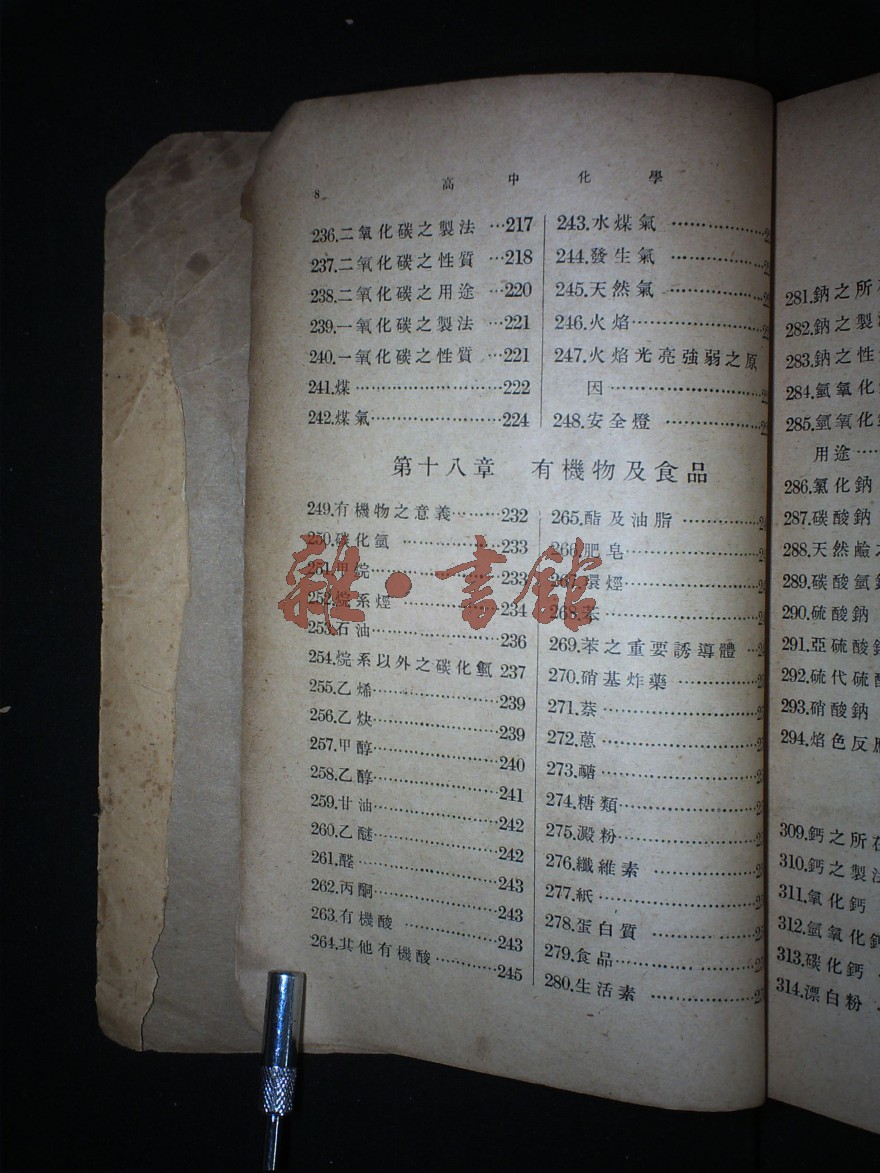 8
高中化學
236.二氧化碳之製法 …217
237.二氧化碳之性質 …218
238.二氧化碳之用途 …220
239.一氧化碳之製法 …221
240.一氧化碳之性質 …221
241.煤………………222
242.煤氣……………224
243.水煤氣 …………
244.發生氣 …………
245.天然氣 …………
246.火焰………………
247.火焰光亮強弱之原
因………………
248.安全燈 …………
第十八章 有機物及食品
249.有機物之意義………232
250.碳化氫 ……………233
251.甲烷………………233
252.烷系烴 ……………234
253.石油………………236
254.烷系以外之碳化氫 237
255.乙烯………………239
256.乙炔………………239
257.甲醇………………240
258.乙醇………………241
259.甘油………………242
260.乙醚………………242
261.醛…………………243
262.丙酮………………243
263.有機酸 ……………243
264.其他有機酸………245
265.酯及油脂 …………
266.肥皂………………
267.環烴………………
268.苯…………………
269.苯之重要誘導體 …
270.硝基炸藥 …………
271.萘…………………
272.蒽…………………
273.醣…………………
274.糖類………………
275.澱粉………………
276.纖維素 ……………
277.紙…………………
278.蛋白質 ……………
279.食品………………
280.生活素 ……………
281.鈉之所在
282.鈉之製法
283.鈉之性
284.氫氧化
285.氫氧化
用途……
286.氯化鈉
287.碳酸鈉
288.天然鹼之
289.碳酸氫鈉
290.硫酸鈉
291.亞硫酸鈉
292.硫代硫酸
293.硝酸鈉
294.焰色反應
309.鈣之所在
310.鈣之製法
311.氧化鈣
312.氫氧化鈣
313.碳化鈣
314.漂白粉
雜·書館